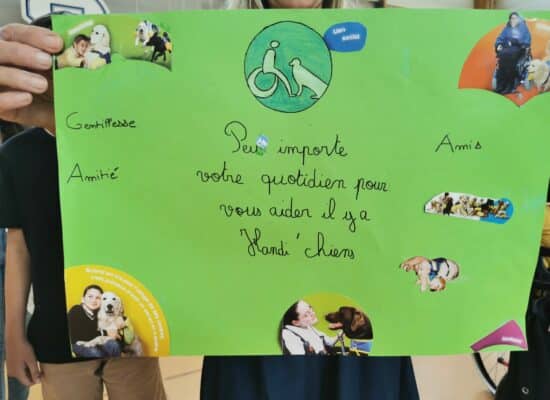 Lien social
Gentillesse
Amitié
Peu importe
votre quotidien pour
vous aider il y a
Handi'chiens
Amis